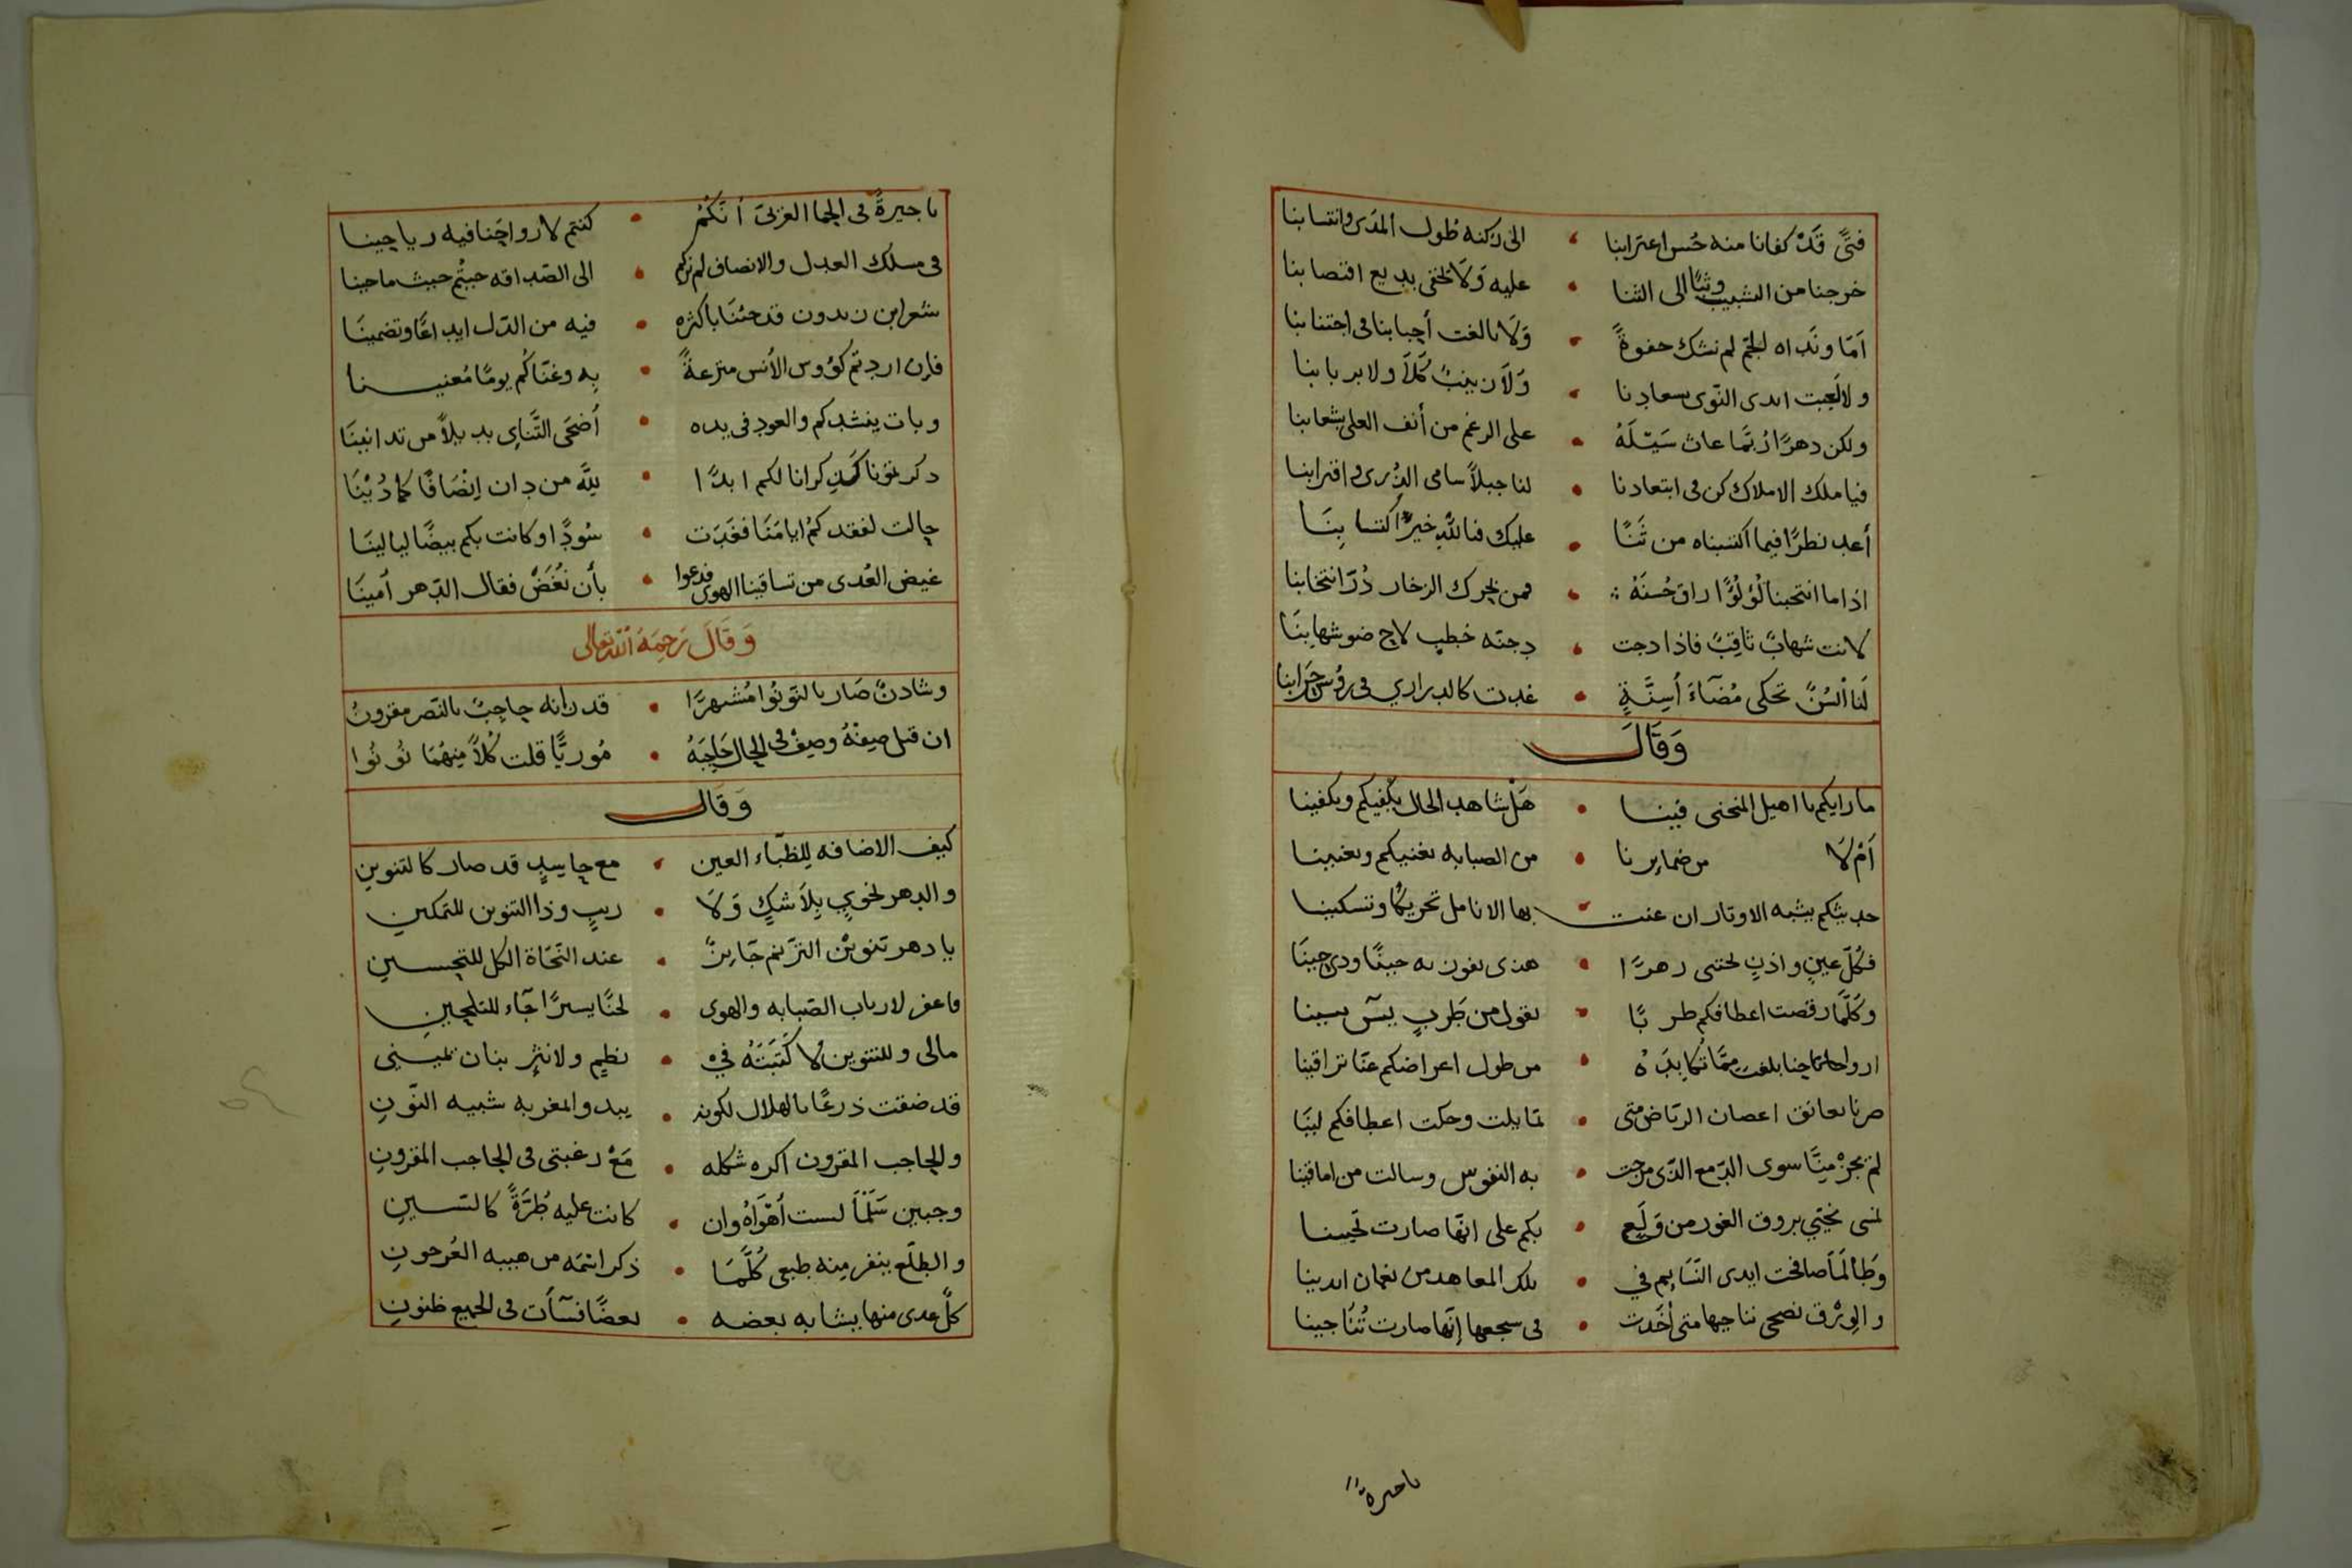 فتًى قد كفانا منه حُسن اعترابنا • الى ركنه طول المدى وانتسابنا
خرجنا من الشبيب وثبًا الى الثنا • عليه وَلَا يخفى بديع اقتضابنا
اَمَا ونَداه الجمّ لم نشك جفوةً • وَلَا بالغت أحبابنا فى اجتنابنا
ولا لَعِبت ايدى النّوى بسعادنا • وَلَا زينبٌ كَلّا ولا بربابنا
ولكن دهرًا رُبمَّا عاث سَيْلَهُ • على الرغم من أنف العلى بشعابنا
فيا ملك الاملاك كن فى ابتعادنا • لنا جبلًا سامى الذُرى واقترابنا
أعد نظرًا فيما اكتسبناه من ثَنًا • عليك فنا لله خيرٌ اكتسابِنَا
اذا ما انتخبنا لُؤلُؤًا راق حُسنَهُ • فمن بحرك الزخار دُرّ انتخابنا
لانت شهابٌ ثاقِبٌ فاذا دجت • دجنّه خطبٍ لاح ضو شهابنَا
لَنا اَلسُنٌ تحكى مُضآءَ أَسِنَّةٍ • غدت كالدرارى فى رؤس حَرَابنا
وَقَالَ
ما رايكم يا اهيل المنحنى فينا • هَل شاهد الحال يكْفيكم ويكفينا
اَمْ لَا من ضمايرنا • من الصبابه تغنيكم وتغنينا
حديثكم يشبه الاوتار ان عنت • بها الانامل تحريكًا وتسكينا
فكلّ عينٍ واذنٍ تجتنى زهرًا • هذى تفوز به حينًا وذى حِينَا
وكُلَّمَا رقصت اعطافكم طربًا • نقول من طَرَبٍ يسٓ يسينا
ارواحنا بلغت مِمَّا تُكَابِدَهُ • من طول اعراضكم عنّا تراقينا
صرنا نعانق اغصان الرّياض متى • تمايلت وحكت اعطافكم لينَا
لم يجرْ مِنَّا سوى الدّمع الذّى مزجت • به النفوس وسالت من اماقينا
نمسى نحيّي بروق الغور من وَلَعٍ • بكم على انّها صارت تحيّينا
وَطَالَمَا صافحت ايدى النّسَايِم فى • تلك المعاهد من نعمان ايدينا
والوِرْق نصحى نناجيها متى أخَذت • فى سجعها إنّها صارت تُنَاجينا
يا جيرةً
يا جيرةً فى الحِما الغربىّ أنكُمُ • كنتم لارواحِنا فيه رياحِينا
فى مسلك العدل والانصاف لم نركم • الى الصّداقه جيتُم حيث ما حينا
شعر ابن زيدون قد جئنَا باكثره • فيه من الدّل ايداعًا وتضمينَا
فإن اردتم كؤوس الأنس منزعةً • بِه وغنّاكُم يومًا مُغنينا
وبات ينشدكم والعود فى يده • أضحَى التَّناءِى بديلًا من تدانينَا
ذكرتمونا كذِكرانا لكم ابدًا • لِلَّه من دان اِنْصَافًا كما دُيْنَا
حالت لفقدكمُ ايامَنَا فغَدَت • سُودًا وكانت بكم بيضًا ليالينَا
غيض العُدى من تساقينا الهوى فدعوا • بأن نُغَصّ فقال الدّهر أمينَا
وَقَالَ رَحِمَهُ اللّه تعالى
وشادنٌ صَار بالتوتُوا مُشْهرًا • قد زانه حاجِبٌ بالنّصر مقرونُ
ان قيل صِفْهُ وصِفْ فى الحال حَاجِبَهُ • مُوريًّا قلت كُلًا مِنهُمَا نُونُوا
وَقَال
كيف الاضافه لِلظّباء العين • مع حاسِدٍ قد صار كالتنوين
والدهر نحوي بِلَا شكٍ وَلَا • ريبٍ وذا التنوين للتمكين
يا دهر تنوِيْن الترّنم جَايزٌ • عند النّحَاة الكل للتحسين
فاعفر لارباب الصّبابه والهوى • لحنًا يسيرًا جَاء للتلحين
مالى وللتنوين لا كَتَبَتْهُ فى • نظمٍ ولا نثرٍ بنان يمينى
قد ضقت ذرعًا بالهلال لكونه • يبدو المغربه شبيه النّونِ
والحاجب المقرون اكره شكله • مَعْ رغبتى فى الحاجب المقرونِ
وجبين سَلْمَا لست أهْوَاهُ وان • كانت عليه طُرَّةً كالسّينِ
والطلع ينفر مِنه طبعى كُلَّمَا • ذكر انتمه من هيبه العُرجونِ
كلّ غدى منها يشابه بعضه • بعضًا فسآت فى الجميع ظنونِ